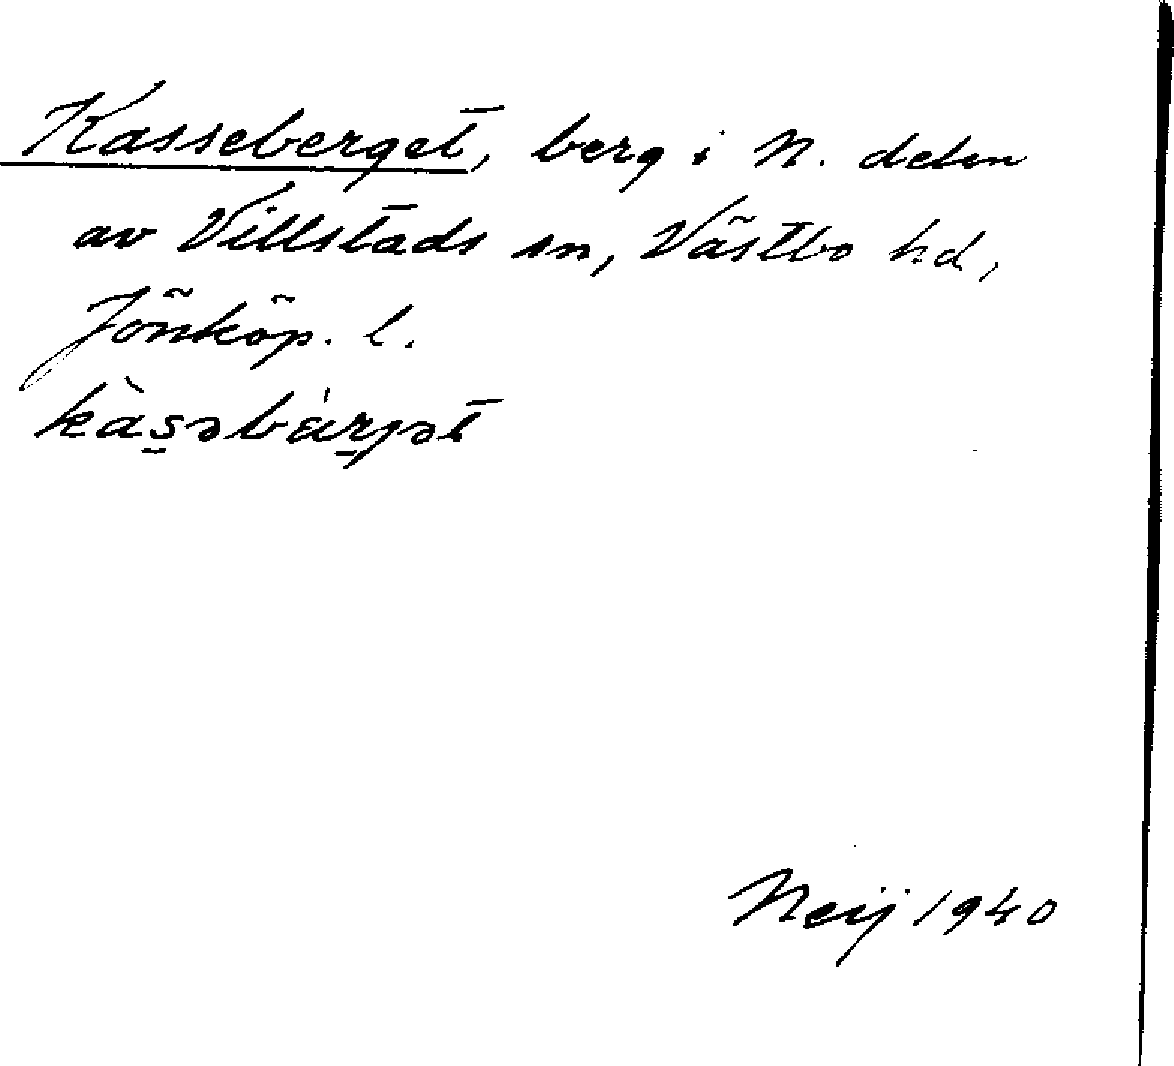 Kasseberget, berg i N. delen
av Villstads sn, Västbo hd,
Jönköp. l.
kàs̲əbár̲jət
Neij 1940